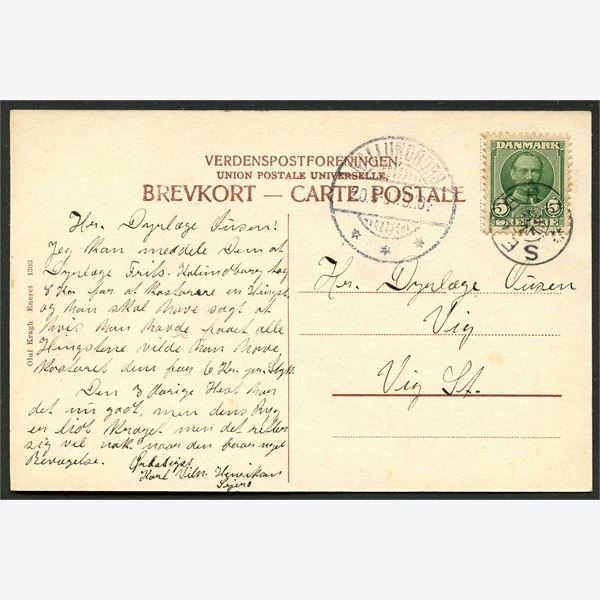 VERDENSPOSTFORENINGEN.
UNION POSTALE UNIVERSELLE.
BREVKORT — CARTE POSTALE
DANMARK
5 5
Hr. Dyrlæge Olsen!
Jeg kan meddele Dem at
Dyrlæge Frits. Kalundborg tog
8 Kr for at kastrere en Hingst
og han skal have sagt at
hvis han havde faaet alle
Hingstene vilde han have
kastreret dem for 6 Kr. pr. Styk.
Den 3 Aarige Hest har
det nu godt, men dens Ryg
er lidt men det retter
sig vel nok naar den faar noget
Bevægelse.
Karl Vilh. Henriksen
Sejerø
Hr. Dyrlæge Olsen
Vig
Vig St.
Oluf Kragh Eneret 1303